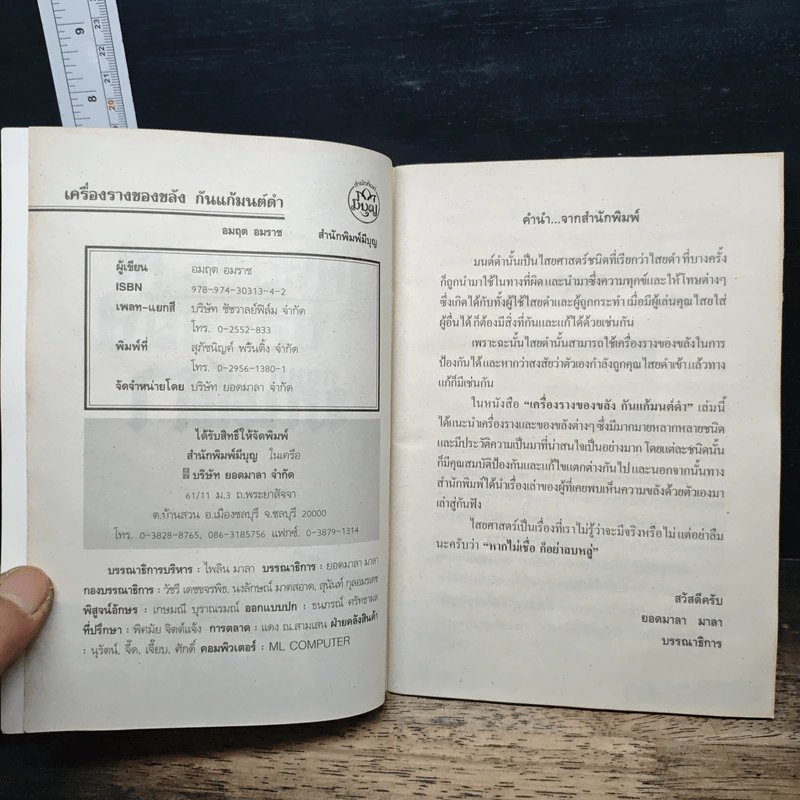 9
8
23
22
21
20
เครื่องรางของขลัง กันแก้มนต์ดำ
สำนักพิมพ์
มีบุญ
อมฤต อมราช สำนักพิมพ์มีบุญ
ผู้เขียน อมฤต อมราช
ISBN 978-974-30313-4-2
เพลท-แยกสี บริษัท ชัชวาลย์ฟิล์ม จำกัด
โทร. 0-2552-833
พิมพ์ที่ สุภัชนิญค์ พริ้นติ้ง จำกัด
โทร. 0-2956-1380-1
จัดจำหน่ายโดย บริษัท ยอดมาลา จำกัด
ได้รับสิทธิ์ให้จัดพิมพ์
สำนักพิมพ์มีบุญ ในเครือ
บริษัท ยอดมาลา จำกัด
61/11 ม.3 ถ.พระยาสัจจา
ต.บ้านสวน อ.เมืองชลบุรี จ.ชลบุรี 20000
โทร. 0-3828-8765, 086-3185756 แฟกซ์. 0-3879-1314
บรรณาธิการบริหาร : ไพลิน มาลา บรรณาธิการ : ยอดมาลา มาลา
กองบรรณาธิการ : วัชรี เดชขจรพิช, นงลักษณ์ มาตสอาด, สุนันท์ กุลอมรเดช
พิสูจน์อักษร : เกษมณี บุราณรมณ์ ออกแบบปก : ธนภรณ์ ศรัทธาผล
ที่ปรึกษา : พิศมัย จิตต์แจ้ง การตลาด : แดง ณ.สามเสน ฝ่ายคลังสินค้า
: นุรัตน์, จี๊ด, เจี๊ยบ, ศักดิ์ คอมพิวเตอร์ : ML COMPUTER
คำนำ...จากสำนักพิมพ์
มนต์ดำนั้นเป็นไสยศาสตร์ชนิดที่เรียกว่าไสยดำ ที่บางครั้ง
ก็ถูกนำมาใช้ในทางที่ผิด และนำมาซึ่งความทุกข์และให้โทษต่างๆ
ซึ่งเกิดได้กับทั้งผู้ใช้ไสยดำและผู้ถูกกระทำ เมื่อมีผู้เล่นคุณไสยใส่
ผู้อื่นได้ ก็ต้องมีสิ่งที่กันและแก้ได้ด้วยเช่นกัน
เพราะฉะนั้นไสยดำนั้นสามารถใช้เครื่องรางของขลังในการ
ป้องกันได้ และหากว่าสงสัยว่าตัวเองกำลังถูกคุณไสยดำเข้าแล้วทาง
แก้ก็มีเช่นกัน
ในหนังสือ “เครื่องรางของขลัง กันแก้มนต์ดำ” เล่มนี้
ได้แนะนำเครื่องรางและของขลังต่างๆ ซึ่งมีมากมายหลากหลายชนิด
และมีประวัติความเป็นมาที่น่าสนใจเป็นอย่างมาก โดยแต่ละชนิดนั้น
ก็มีคุณสมบัติป้องกันและแก้ไขแตกต่างกันไป และนอกจากนั้นทาง
สำนักพิมพ์ได้นำเรื่องเล่าของผู้ที่เคยพบเห็นความขลังด้วยตัวเองมา
เล่าสู่กันฟัง
ไสยศาสตร์เป็นเรื่องที่เราไม่รู้ว่าจะมีจริงหรือไม่ แต่อย่าลืม
นะครับว่า “หากไม่เชื่อ ก็อย่าลบหลู่”
สวัสดีครับ
ยอดมาลา มาลา
บรรณาธิการ